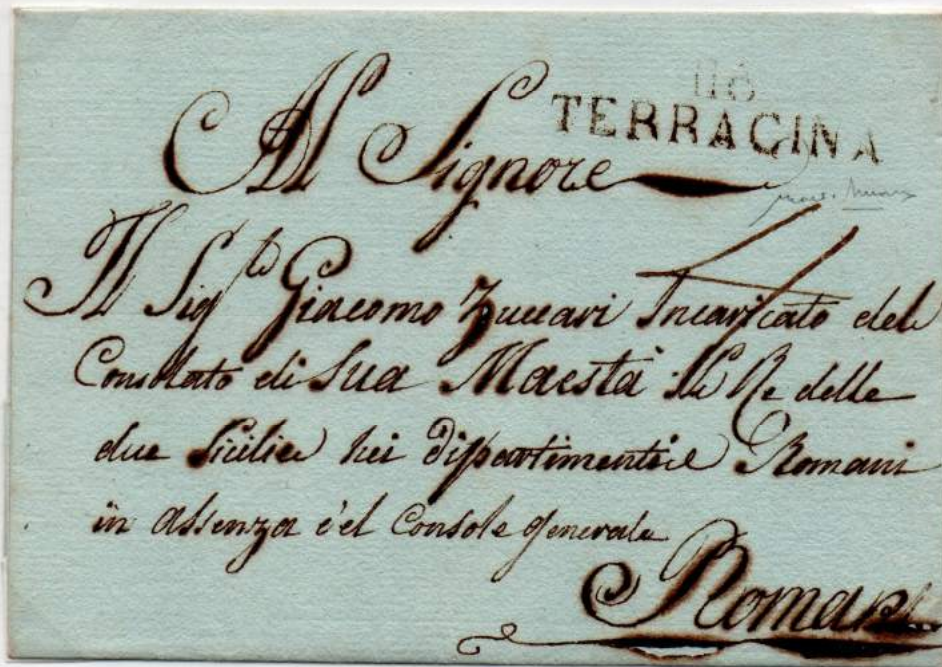 116
TERRACINA
Al Signore
Il Sig.re Giacomo Zuccari Incaricato del
Consolato di Sua Maestà il Re delle
due Sicilie nei Dipartimenti Romani
in assenza del Console generale
Roma